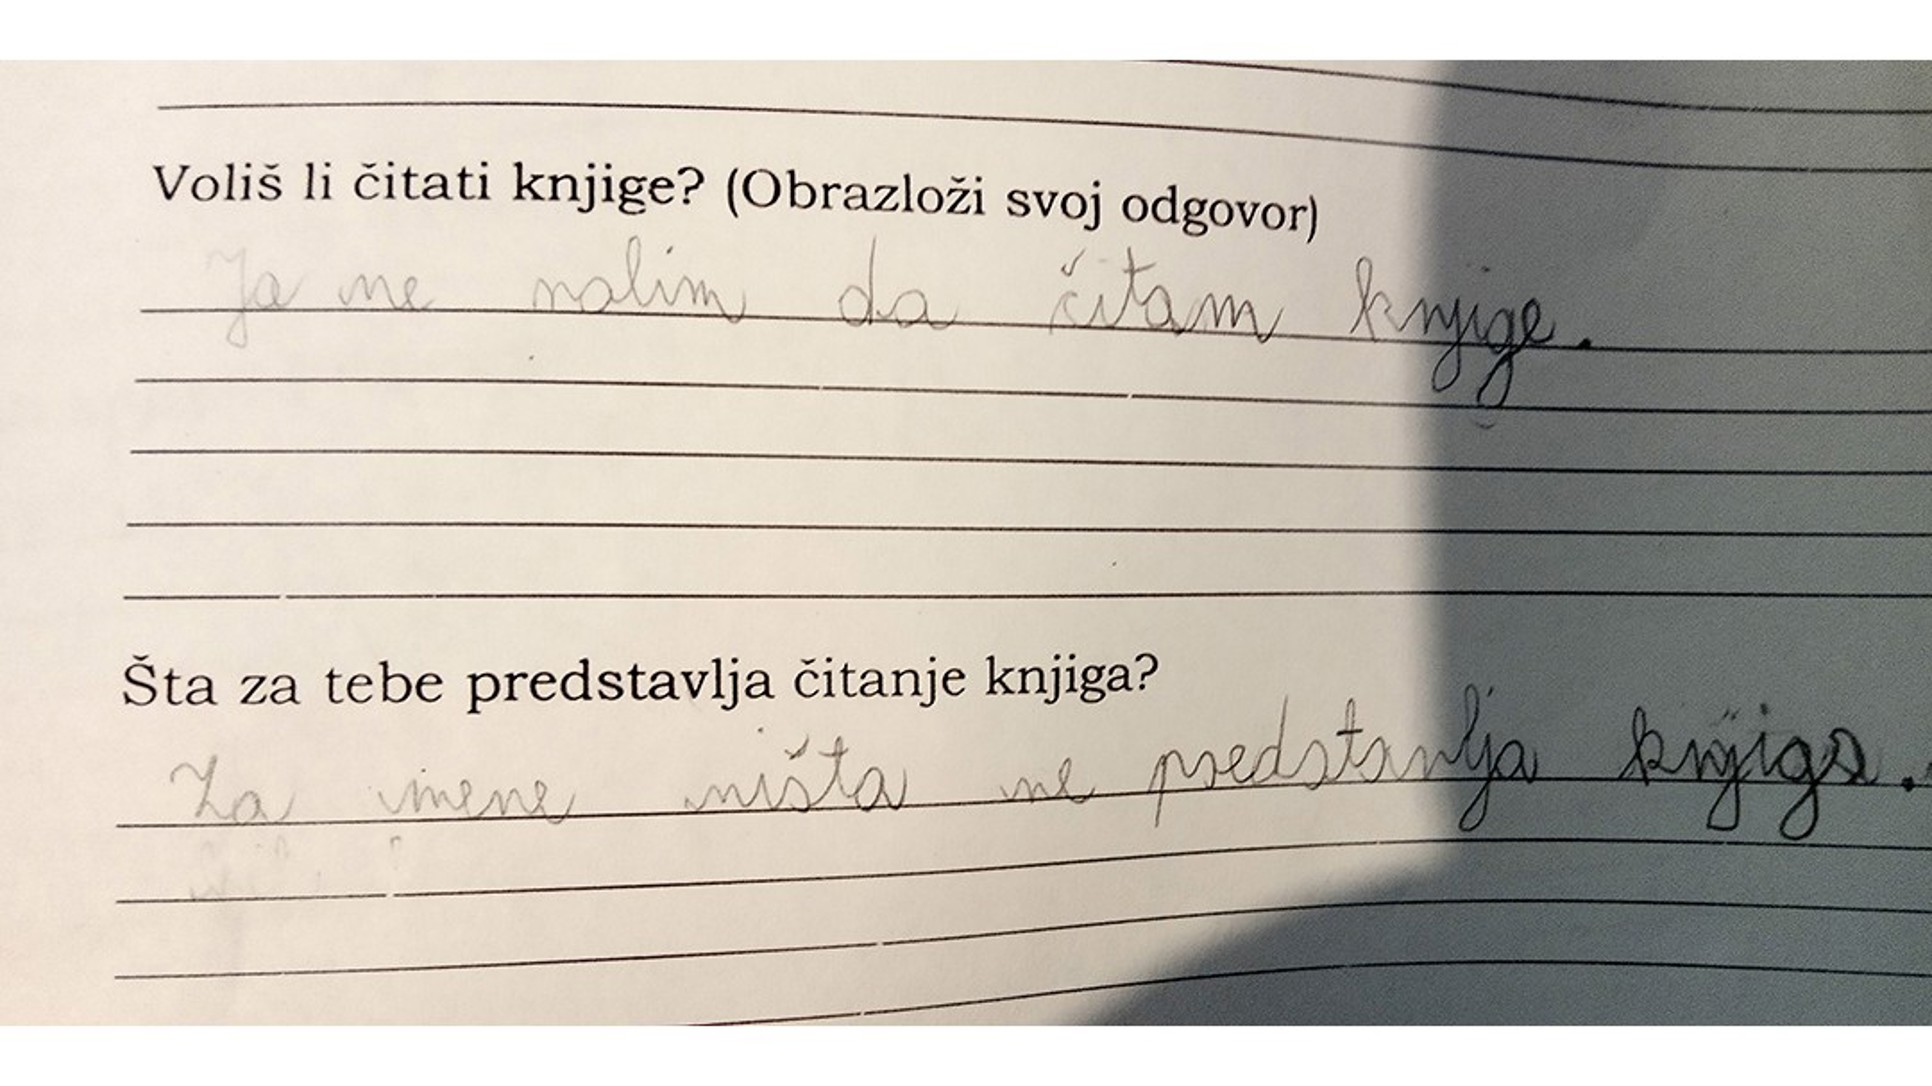 Voliš li čitati knjige? (Obrazloži svoj odgovor)
Ja ne volim da čitam knjige.
Šta za tebe predstavlja čitanje knjiga?
Za mene ništa ne predstavlja knjiga.